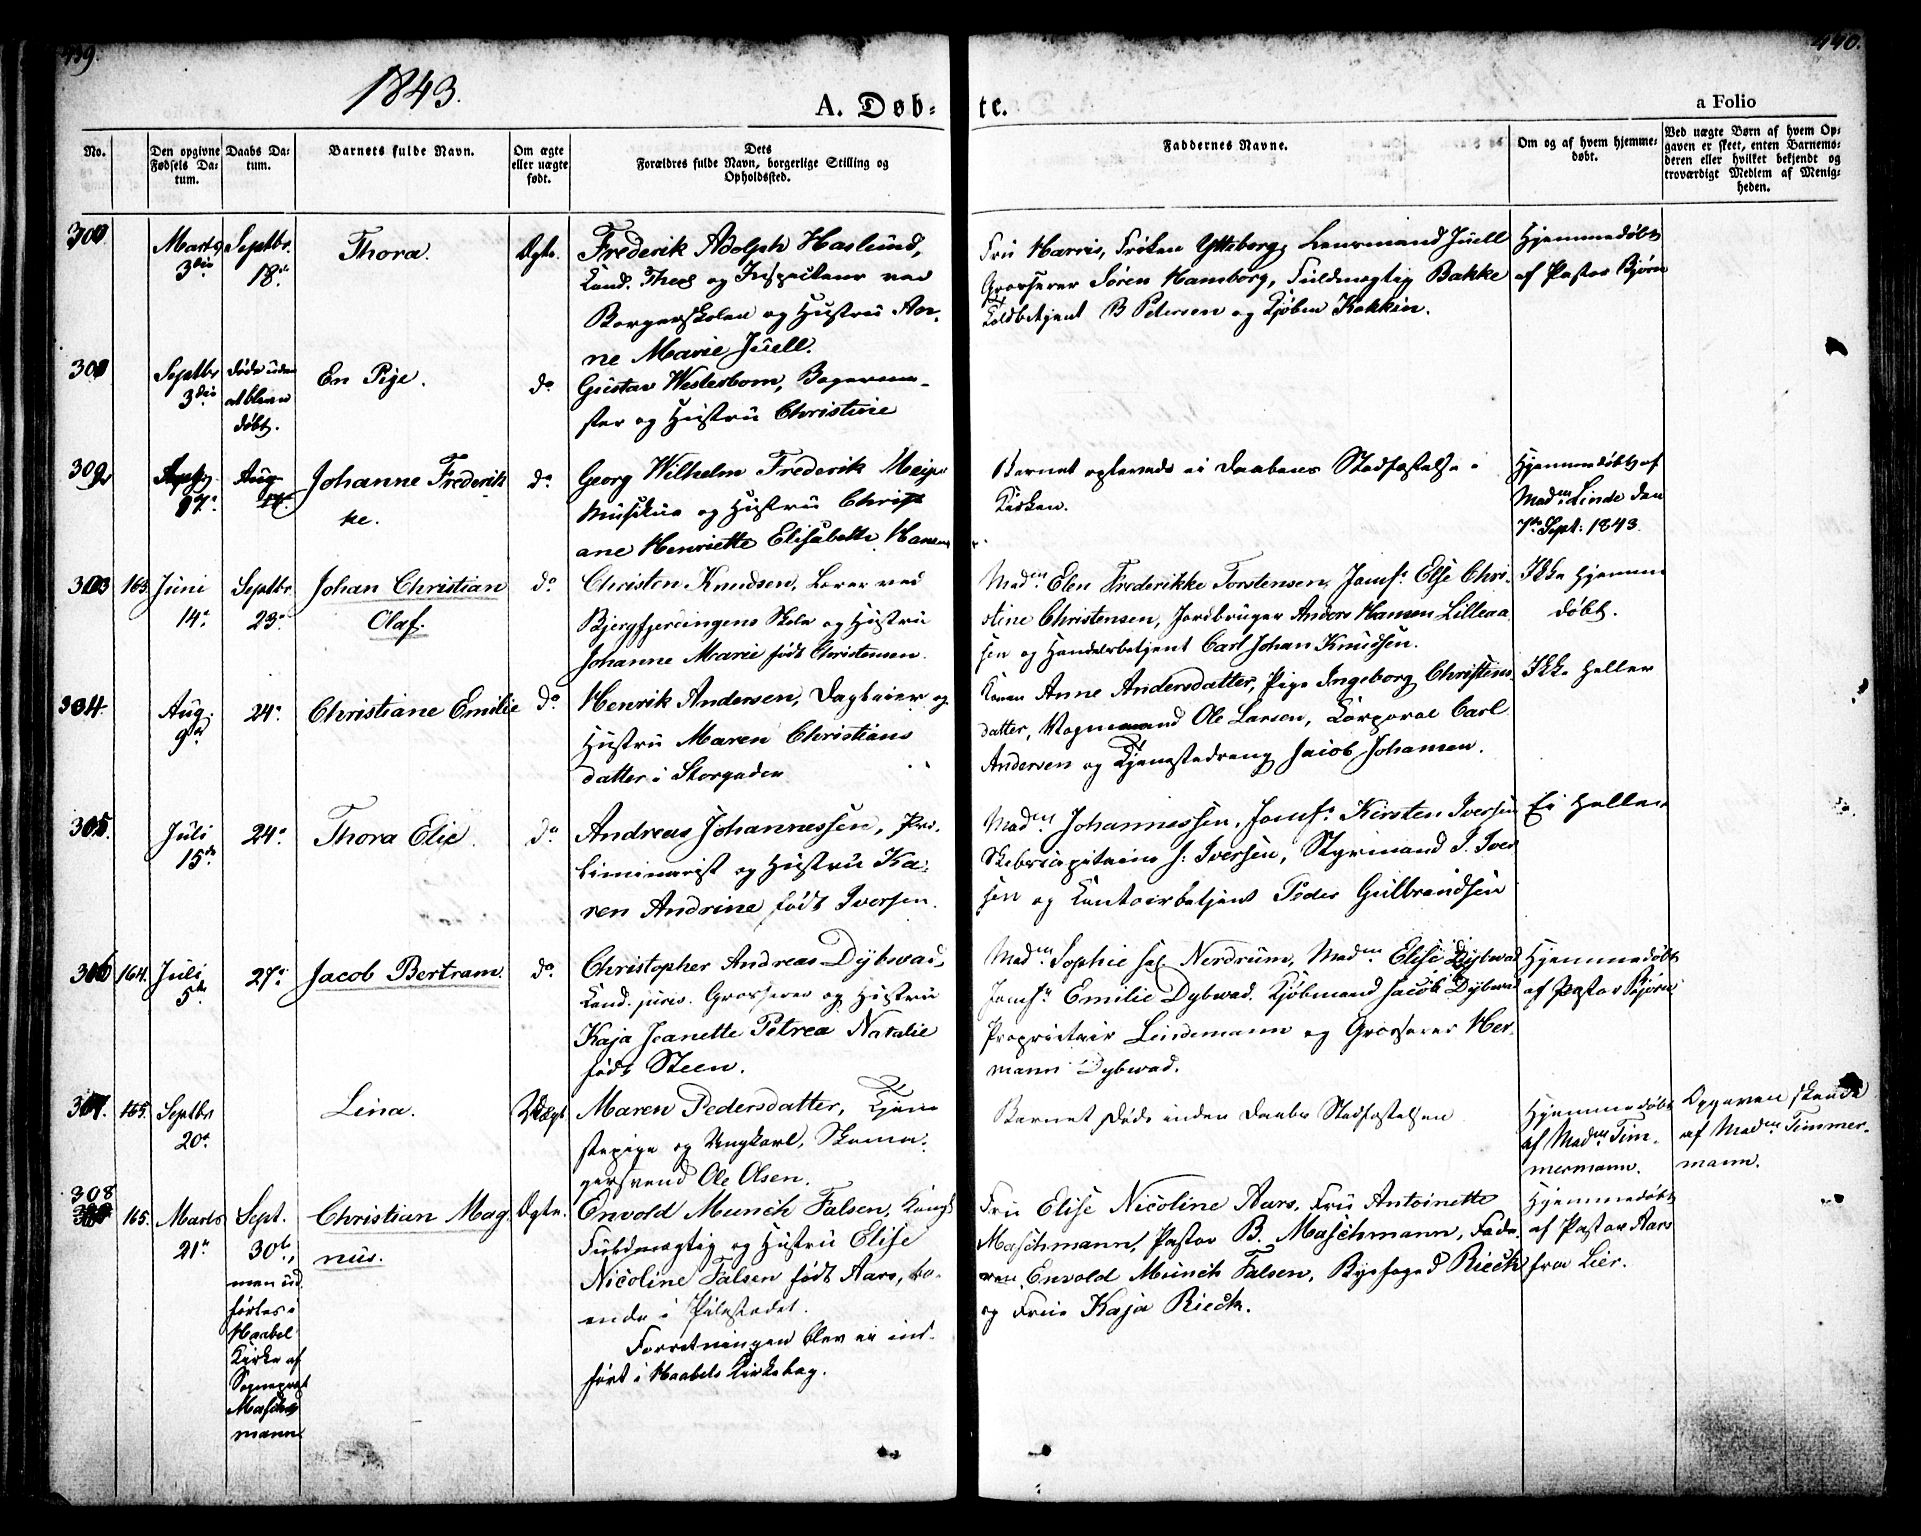 439.
1843.
A. Døb-
te.
a Folio
440.
No.
Den opgivne Fødsels Datum.
Daabs Datum.
Barnets fulde Navn.
Om ægte eller uægte født.
Dets Forældres fulde Navn, borgerlige Stilling og Opholdssted.
Faddernes Navne.
Om og af hvem hjemmedøbt.
Ved uægte Børn af hvem Opgaven er skeet, enten Barnemoderen eller hvilket bekjendt og troværdigt Medlem af Menigheden.
300
Marts 3die
Septbr. 18de
Thora.
Ægte.
Frederik Adolph Haslund,
Cand. Theol og Inspecteur ved
Borgerskolen og Hustru An-
ne Marie Juell.
Fru Harris, Frøken Ytteborg, Lensmand Juell
Grosserer Søren Hamborg, Fuldmægtig Bakke
Toldbetjent B Petersen og Kjøbm
Hjemmedøbt
af Pastor Bjørn
Septbr 3die
døde uden
at blive
døbt.
En Pige.
do
Gustav Westerbom, Bagerme-
ster og Hustru Christine
302
Aug
Johanne Frederik
ke.
do
Georg Wilhelm Frederik
Musikus og Hustru Christ
ane Henriette Elisabeth Hansen
Barnet oplevede ei Daabens Stadfæstelse i
Kirken.
Hjemmedøbt af
Madm Linde den
7de Sept: 1843.
303
163.
Juni 14de
Septbr 23de
Johan Christian
Olaf.
do
Christen Knudsen, Lærer ved
Bjergfjerdingens Skole og Hustru
Johanne Marie født Christensen.
Madm. Elen Frederikke Torstensen, Jomfr Else Chri-
stine Christensen, Jordbruger Anders Hansen Lilleaa
sen og Handelsbetjent Carl Johan Knudsen.
Ikke hjemme
døbt.
304.
Aug. 9de
24de
Christiane Emilie
do
Henrik Andersen, Dagleier og
Hustru Maren Christians
datter i Storgaden
Konen Anne Andersdatter, Pige Ingeborg Christians
datter, Vognmand Ole Larsen, Corporal Carl
Andersen og Tjenestedreng Jacob Johansen.
Ikke heller
305.
Juli 15de
24de
Thora Elie.
do
Andreas Johannessen, Præ-
liminarist og Hustru Ka-
ren Andrine født Iversen.
Madm. Johannessen, Jomfr Kirsten Iversen
Skibscapitaine J. Iversen, Styrmand J. Iver
sen og Contoirbetjent Peder Gulbrandsen
Ei heller
306
164.
Juli 5te
27de
Jacob Bertram
do
Christopher Andreas Dybwad,
Cand. juris. Grosserer og Hustru
Kaja Jeanette Petrea Natalie
født Steen.
Madm Sophie sal Nerdrum, Madm Elise Dybwad
Jomfr Emilie Dybwad. Kjøbmand Jacob Dybwad
Proprietair Lindemann og Grosserer Her-
mann Dybwad.
Hjemmedøbt
af Pastor Bjørn
307.
165.
Septbr 20de
Lina.
Uægte
Maren Pedersdatter, Tjene
stepige og Ungkarl, Skoma-
gersvend Ole Olsen.
Barnet døde inden Daabs Stadfæstelsen
Hjemmedøbt
af Madm Tim-
mermann.
Opgaven skeede
af Madm Timmer-
mann.
308
165.
Marts 21de
Sept. 30te,
men ud
førtes i
Haabøl
Kirke af
Sognepræst
Masch
mann
Christian Mag
nus.
Ægte.
Envold Munch Falsen, Kongl
Fuldmægtig og Hustru Elise
Nicoline Falsen født Aars, bo-
ende i Pilestædet.
Forretningen blev ei ind-
ført i Haabøls Kirkebog.
Fru Elise Nicoline Aars, Fru Antoinette
Maschmann, Pastor B. Maschmann, Fade-
ren Envold Munch Falsen, Byefoged Rieck
og Frue Kaja Rieck.
Hjemmedøbt
af Pastor Aars
fra Lier.